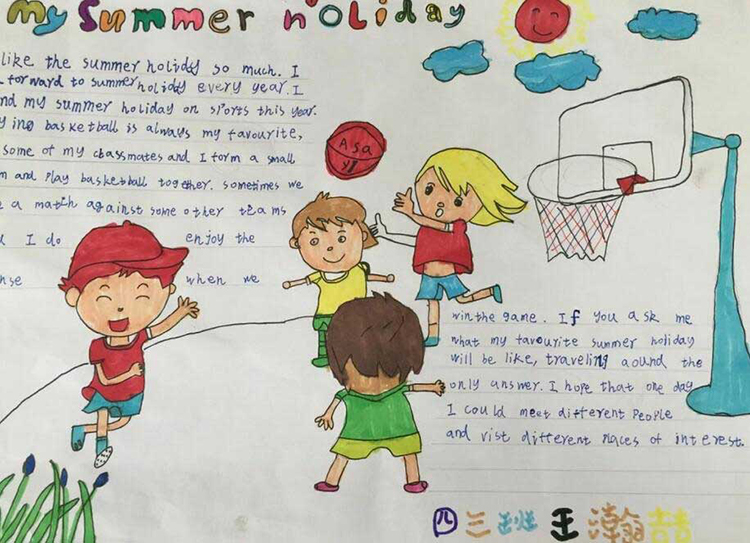 My Summer holiday
like the summer holidy so much. I
forward to summer holidy every year. I
nd my summer holiday on sports this year.
ying basketball is always my favourite,
some of my classmates and I form a small
m and play basketball together. sometimes we
e a match against some other teams
I do enjoy the
nse when we
Asa
win the game. If you ask me
what my favourite summer holiday
will be like, traveling aound the
only answer. I hope that one day
I could meet different People
and vist different places of interest.
四三班王瀚喆